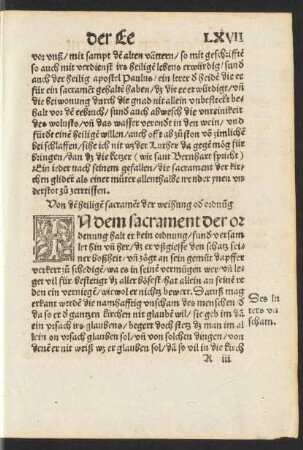 der Ee LXVII
vor vnß/ mit sampt dē alten vättern/ so mit geschrifft
so auch mit verdienst irs heiligē lebens erwürdig/ sund
auch der heilig apostel Paulus/ ein lerer d heidē die er
für ein sacramēt gehaltē haben/ dz die ee er würdigt/ vñ
die beiwonung durch die gnad nit allein vnbefleckt be
halt vor dē eebruch/ sund auch abwesch die vnreinikeit
des wolusts/ vñ das wasser verendt in den wein/ vnd
fürdt eine heiligē willen/ auch offt ab zůston vō zimlichē
bei schlaffen/ sihe ich nit wz der Luther da gegē mög für
bringen/ dan dz die ketzer (wie sant Bernhart spricht)
Ein ieder nach seinem gefallen/ die sacrament der kir-
chen glider als einer můter allenthalbē mit der yren vn
derstot zů zerreissen.
Von dē heiligē sacramēt der weihung od ordnūg
IN dem sacrament der or
denung halt er kein ordnung/ sund versam
let hin vñ her/ dz er vßgiesse den schatz sei-
ner boßheit/ vñ zögt an sein gemüt dapffer
verkert zů schedigē/ wa es in seinē vermügen wer/ vñ le-
get vil für bestetigt dz aller bösest hat allein an seinē re
den ernüegē/ wie wol er nichtz bewert. Daruß mag
erkant werdē die namhafftig vnscham des menschen/ d
da so er d gantzen kirchen nit glaubē wil/ sie geb im dā
ein vrsach irs glaubens/ begert doch stetz dz man im al
lein on vrsach glauben sol/ vñ von solchen dingen/ von
denē er nit weiß wz er glauben sol/ dā so vil in die kirch
Des lu
ters vn
scham.
R iii